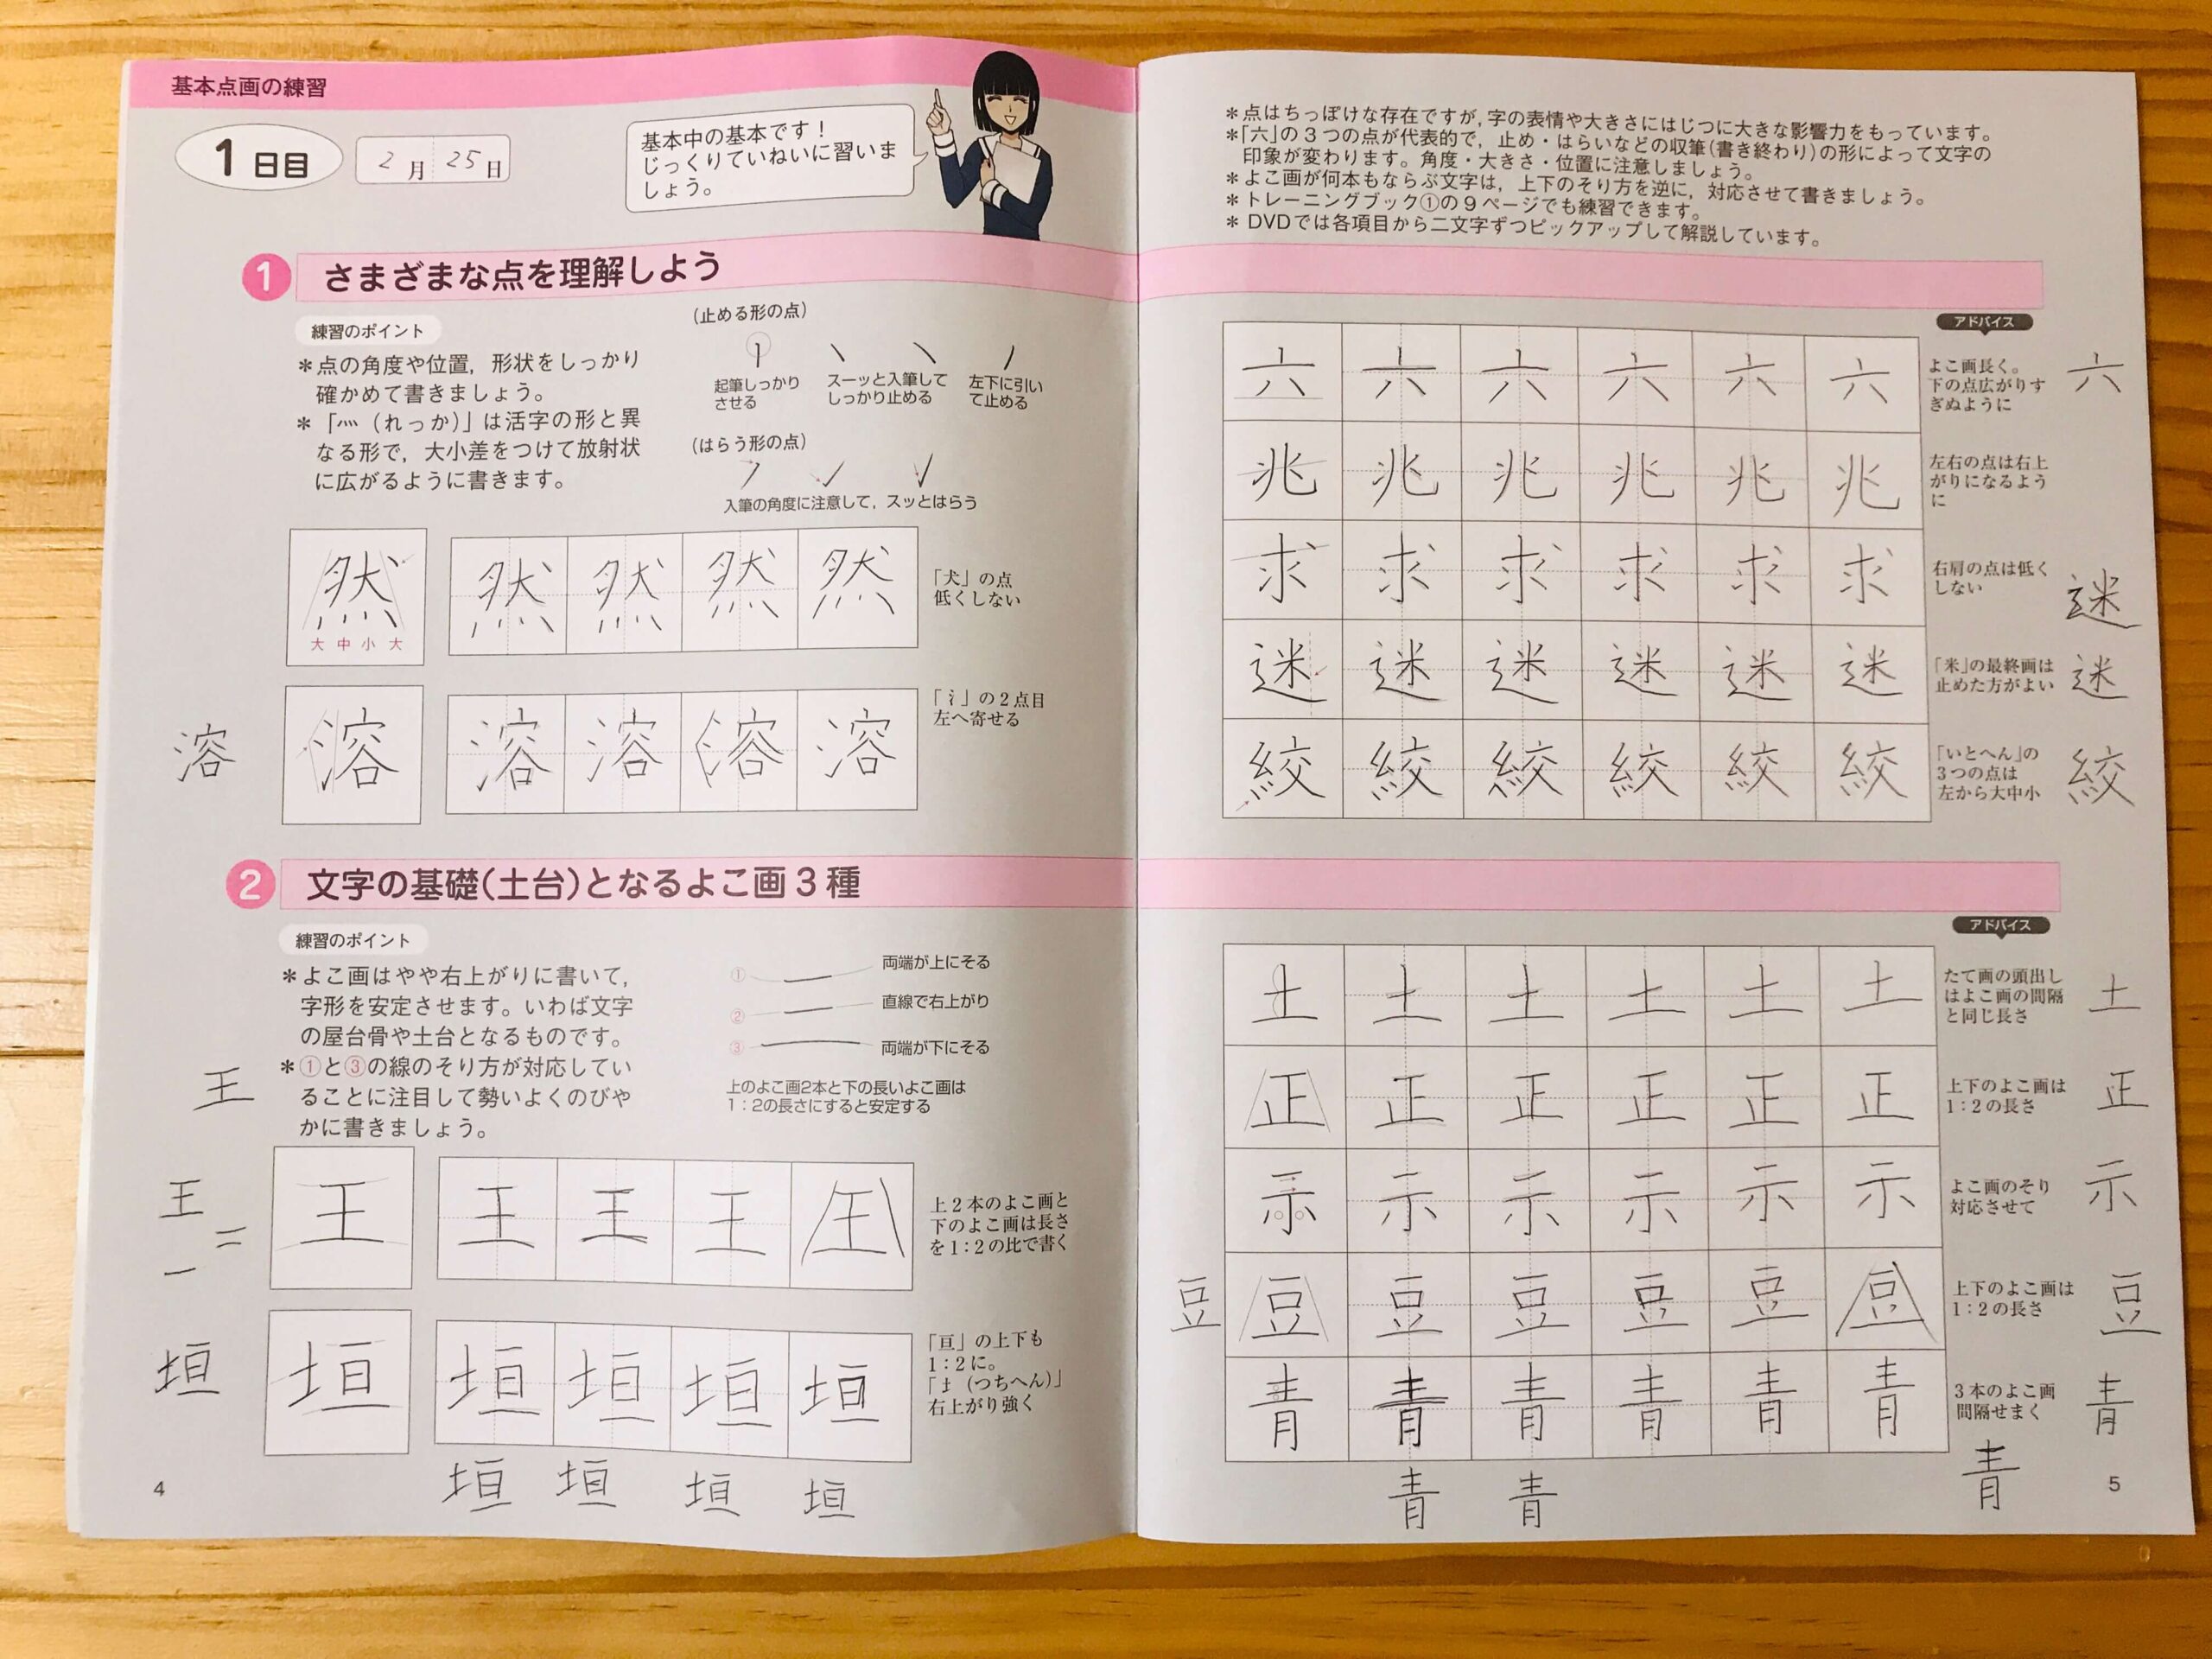 基本点画の練習
1日目
2月25日
基本中の基本です！
じっくりていねいに習いま
しょう。
1 さまざまな点を理解しよう
練習のポイント
＊点の角度や位置，形状をしっかり
確かめて書きましょう。
＊「灬（れっか）」は活字の形と異
なる形で，大小差をつけて放射状
に広がるように書きます。
（止める形の点）
起筆しっかり
させる
スーッと入筆して
しっかり止める
左下に引い
て止める
（はらう形の点）
入筆の角度に注意して，スッとはらう
然 然 然 然 然
大 中 小 大
「犬」の点
低くしない
溶 溶 溶 溶 溶 溶
「氵」の２点目
左へ寄せる
2 文字の基礎（土台）となるよこ画３種
練習のポイント
＊よこ画はやや右上がりに書いて，
字形を安定させます。いわば文字
の屋台骨や土台となるものです。
＊①と③の線のそり方が対応してい
ることに注目して勢いよくのびや
かに書きましょう。
① 両端が上にそる
② 直線で右上がり
③ 両端が下にそる
上のよこ画2本と下の長いよこ画は
1：2の長さにすると安定する
王
王
王 王 王 王 王
上２本のよこ画と
下のよこ画は長さ
を1：2の比で書く
垣 垣 垣 垣 垣 垣
「亘」の上下も
1：2に。
「土（つちへん）」
右上がり強く
垣 垣 垣 垣
4
＊点はちっぽけな存在ですが，字の表情や大きさにはじつに大きな影響力をもっています。
＊「六」の３つの点が代表的で，止め・はらいなどの収筆（書き終わり）の形によって文字の
印象が変わります。角度・大きさ・位置に注意しましょう。
＊よこ画が何本もならぶ文字は，上下のそり方を逆に，対応させて書きましょう。
＊トレーニングブック①の９ページでも練習できます。
＊DVDでは各項目から二文字ずつピックアップして解説しています。
アドバイス
六 六 六 六 六 六 六
よこ画長く。
下の点広がりす
ぎぬように
兆 兆 兆 兆 兆 兆
左右の点は右上
がりになるよう
に
求 求 求 求 求 求
右肩の点は低く
しない
迷
迷 迷 迷 迷 迷 迷 迷
「米」の最終画は
止めた方がよい
絞 絞 絞 絞 絞 絞 絞
「いとへん」の
３つの点は
左から大中小
アドバイス
土 土 土 土 土 土 土
たて画の頭出し
はよこ画の間隔
と同じ長さ
正 正 正 正 正 正 正
上下のよこ画は
1：2の長さ
示 示 示 示 示 示 示
よこ画のそり
対応させて
豆 豆 豆 豆 豆 豆 豆 豆
上下のよこ画は
1：2の長さ
青 青 青 青 青 青 青
３本のよこ画
間隔せまく
青 青 青
5